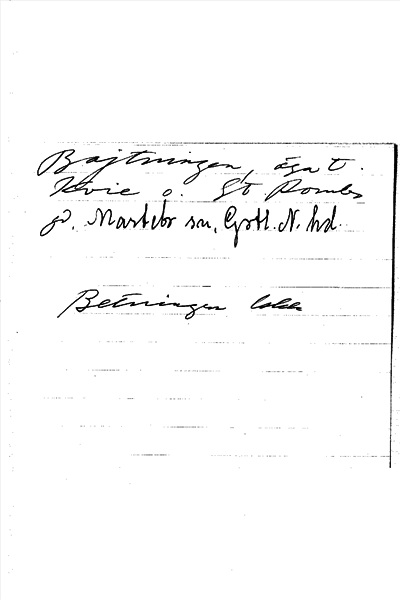 Bajtningen, äga t.
Kvie o. St Romles
gd, Martebo sn, Gotl. N. hd.
Betningen